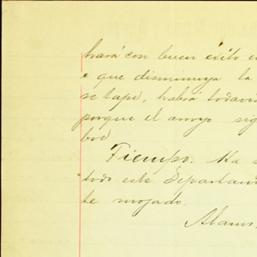 hará con buen éxito
o que disminuya la
se tape, habrá todaví
porque el arroyo sig
bre
Tiempo. Ha
todo este Departam
te mojado.
Alam